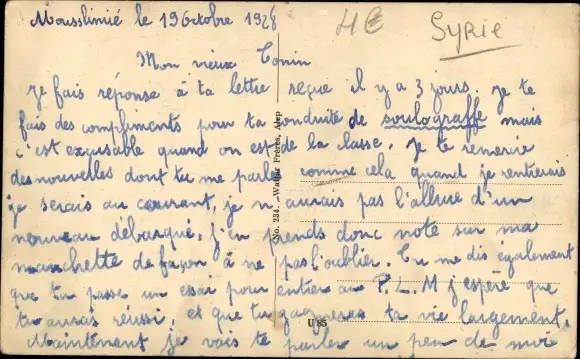 Mousslinié le 19 Octobre 1928
4 €
SYRIE
Mon vieux Tonin
Je fais réponse à ta lettre reçue il y a 3 jours. Je te
fais des compliments pour ta conduite de soulograffe mais
c'est excusable quand on est de la classe. Je te remercie
des nouvelles dont tu me parle comme cela quand je rentrerais
je serais au courant, je n'aurais pas l'allure d'un
nouveau débarqué, j'en prends donc note sur ma
manchette de façon à ne pas l'oublier. Tu me dis également
que tu passe un essai pour entrer au P.L.M j'espère que
tu aurais réussi, et que tu gagneras ta vie largement.
Maintenant je vais te parler un peu de moi
No. 234. - Wattar Frères, Alep
U 85